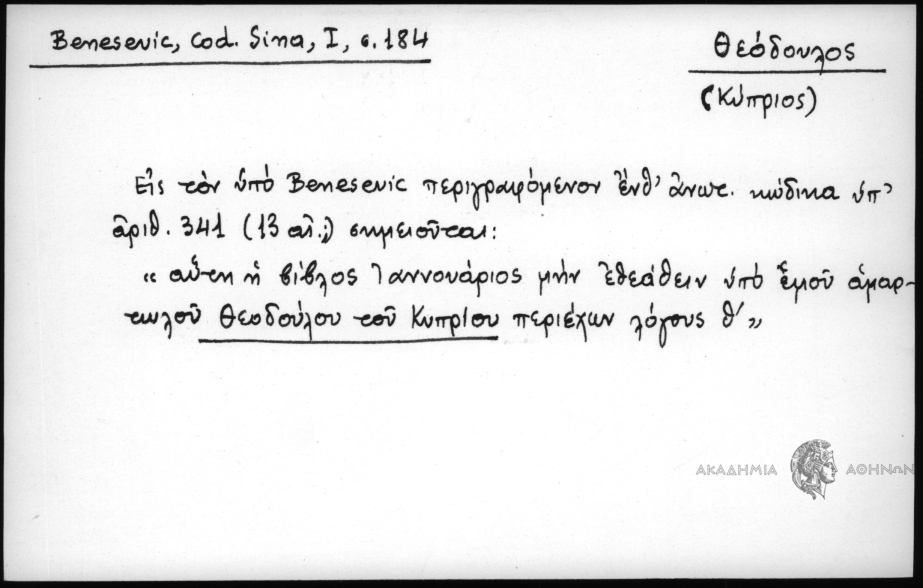 Benesevic, Cod. Sina, I, σ. 184
Θεόδουλος
(Κύπριος)
Εἰς τὸν ὑπὸ Benesevic περιγραφόμενον ἔνθ' ἄνωτ. κώδικα ὑπ'
ἀριθ. 341 (13 αἰ.;) σημειοῦται:
"αὕτη ἡ βίβλος Ἰαννουάριος μὴν ἐθεάθειν ὑπὸ ἐμοῦ ἁμαρ-
τωλοῦ Θεοδούλου τοῦ Κυπρίου περιέχων λόγους θ'"
ΑΚΑΔΗΜΙΑ ΑΘΗΝΩΝ